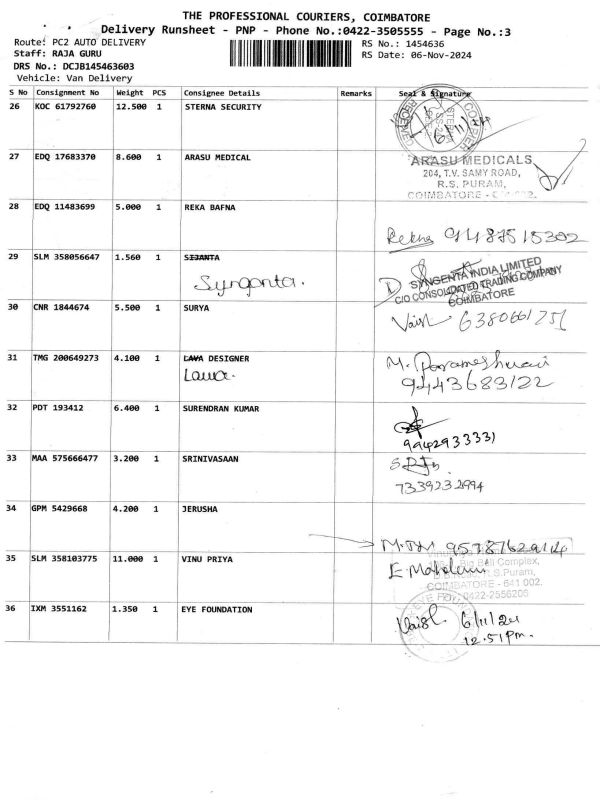 THE PROFESSIONAL COURIERS, COIMBATORE
Delivery Runsheet - PNP - Phone No.:0422-3505555 - Page No.:3
Route: PC2 AUTO DELIVERY
RS No.: 1454636
Staff: RAJA GURU
RS Date: 06-Nov-2024
DRS No.: DCJB145463603
Vehicle: Van Delivery
S No Consignment No Weight PCS Consignee Details Remarks Seal & Signature
26 KOC 61792760 12.500 1 STERNA SECURITY
6/11/24
27 EDQ 17683370 8.600 1 ARASU MEDICAL
ARASU MEDICALS
204, T.V. SAMY ROAD,
R.S. PURAM,
COIMBATORE
28 EDQ 11483699 5.000 1 REKA BAFNA
Rekha 9487515302
29 SLM 358056647 1.560 1 SIJANTA
Syngenta.
SYNGENTA INDIA LIMITED
C/O CONSOLIDATED TRADING COMPANY
COIMBATORE
30 CNR 1844674 5.500 1 SURYA
Vaish 6380661251
31 TMG 200649273 4.100 1 LAVA DESIGNER
Lawa.
M. Parameshwari
9443683122
32 PDT 193412 6.400 1 SURENDRAN KUMAR
9942933331
33 MAA 575666477 3.200 1 SRINIVASAAN
7339232994
34 GPM 5429668 4.200 1 JERUSHA
35 SLM 358103775 11.000 1 VINU PRIYA
Big Bell Complex,
R.S.Puram,
COIMBATORE - 641 002.
0422-2556205
36 IXM 3551162 1.350 1 EYE FOUNDATION
Vaish 6/11/24
12.51pm.